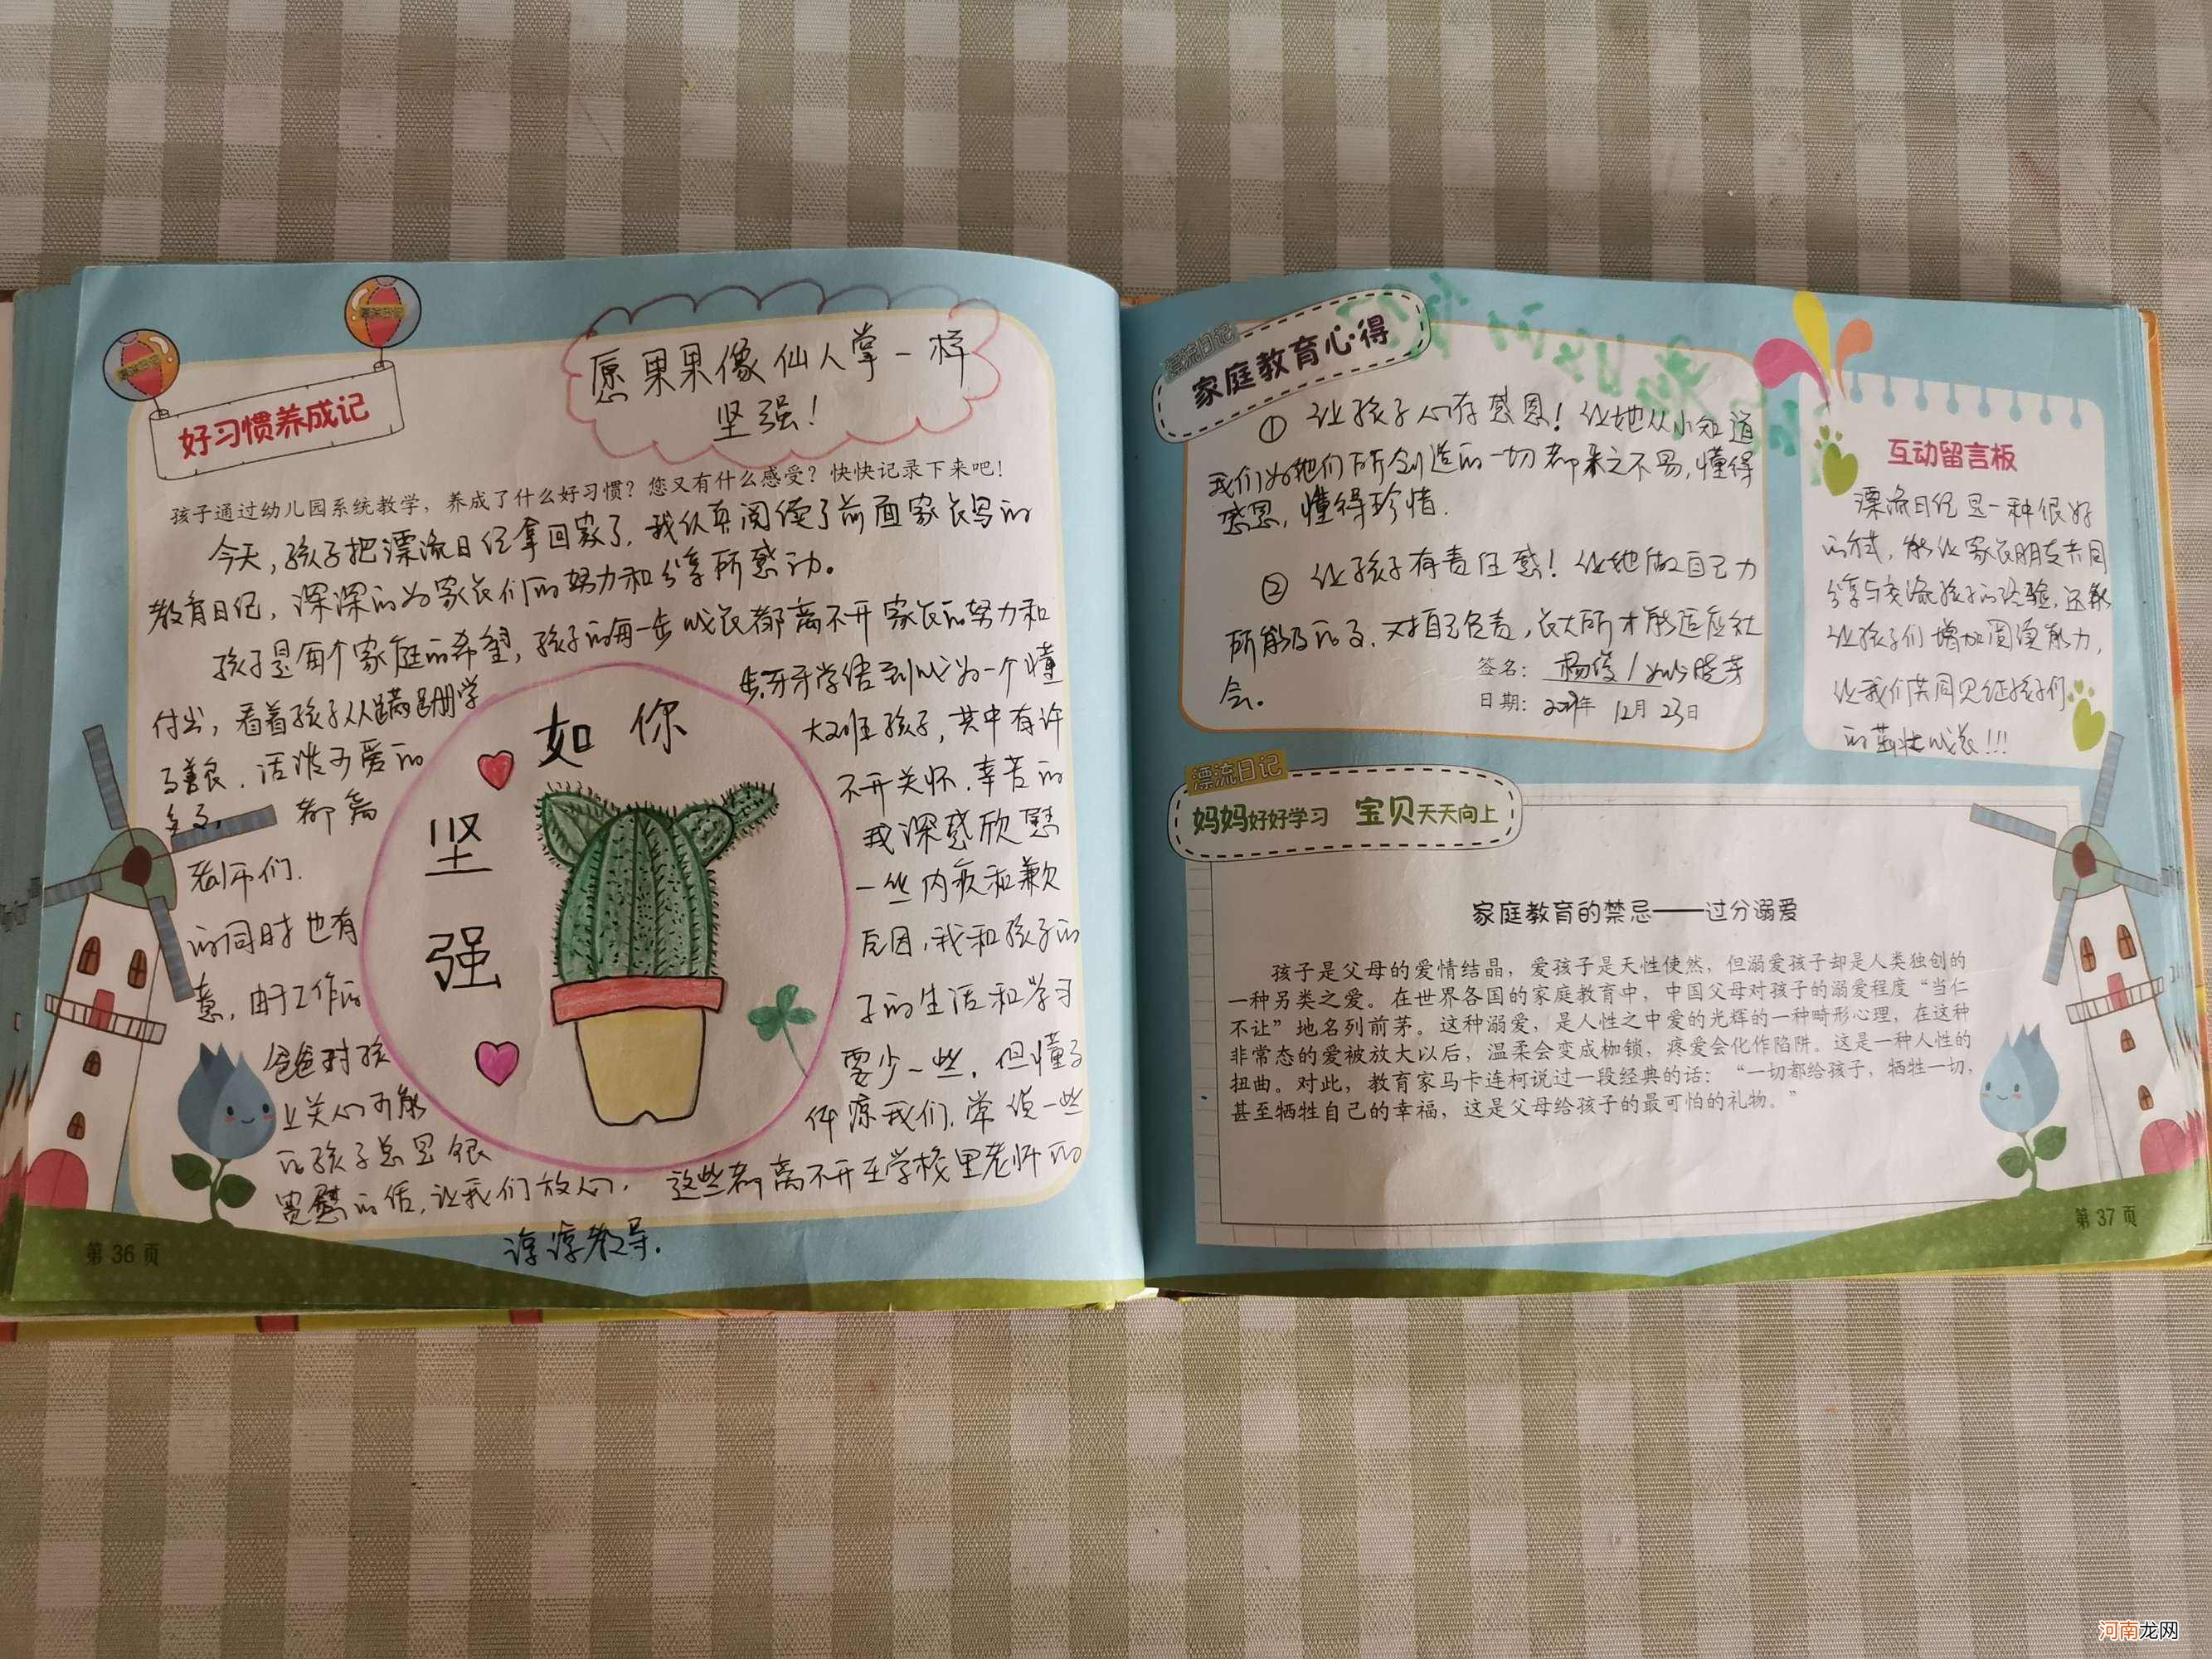 好习惯养成记
愿果果像仙人掌一样
坚强!
孩子通过幼儿园系统教学，养成了什么好习惯？您又有什么感受？快快记录下来吧！
今天,孩子把漂流日记拿回家了,我认真阅读了前面家长写的
教育日记,深深的为家长们的努力和分享所感动。
孩子是每个家庭的希望,孩子的每一步成长都离不开家长的努力和
付出,看着孩子从蹒跚学步,牙牙学语到成为一个懂
善良,活泼可爱的大班孩子,其中有许
多多,都离不开关怀,辛苦的
老师们.我深感欣慰
的同时也有一丝内疚和歉
意,由于工作的原因,我和孩子的
爸爸对孩子的生活和学习
上关心可能要少一些,但懂事
的孩子总是很体谅我们,常说一些
宽慰的话,让我们放心,这些都离不开在学校里老师的
谆谆教导.
如你
坚
强
第 36 页
漂流日记
家庭教育心得
① 让孩子心存感恩! 让她从小知道
我们为她们所创造的一切都来之不易,懂得
感恩,懂得珍惜.
② 让孩子有责任感! 让她做自己力
所能及的事,对自己负责,长大后才能适应社
会.
签名：杨俊/
日期： 年 12月 23日
互动留言板
漂流日记是一种很好
的方式,能让家长朋友共同
分享与交流孩子的经验,还能
让孩子们增加阅读能力,
让我们共同见证孩子们
的茁壮成长!!!
漂流日记
妈妈好好学习 宝贝天天向上
家庭教育的禁忌——过分溺爱
孩子是父母的爱情结晶，爱孩子是天性使然，但溺爱孩子却是人类独创的
一种另类之爱。在世界各国的家庭教育中，中国父母对孩子的溺爱程度“当仁
不让”地名列前茅。这种溺爱，是人性之中爱的光辉的一种畸形心理，在这种
非常态的爱被放大以后，温柔会变成枷锁，疼爱会化作陷阱。这是一种人性的
扭曲。对此，教育家马卡连柯说过一段经典的话：“一切都给孩子，牺牲一切，
甚至牺牲自己的幸福，这是父母给孩子的最可怕的礼物。”
第 37 页
河南龙网